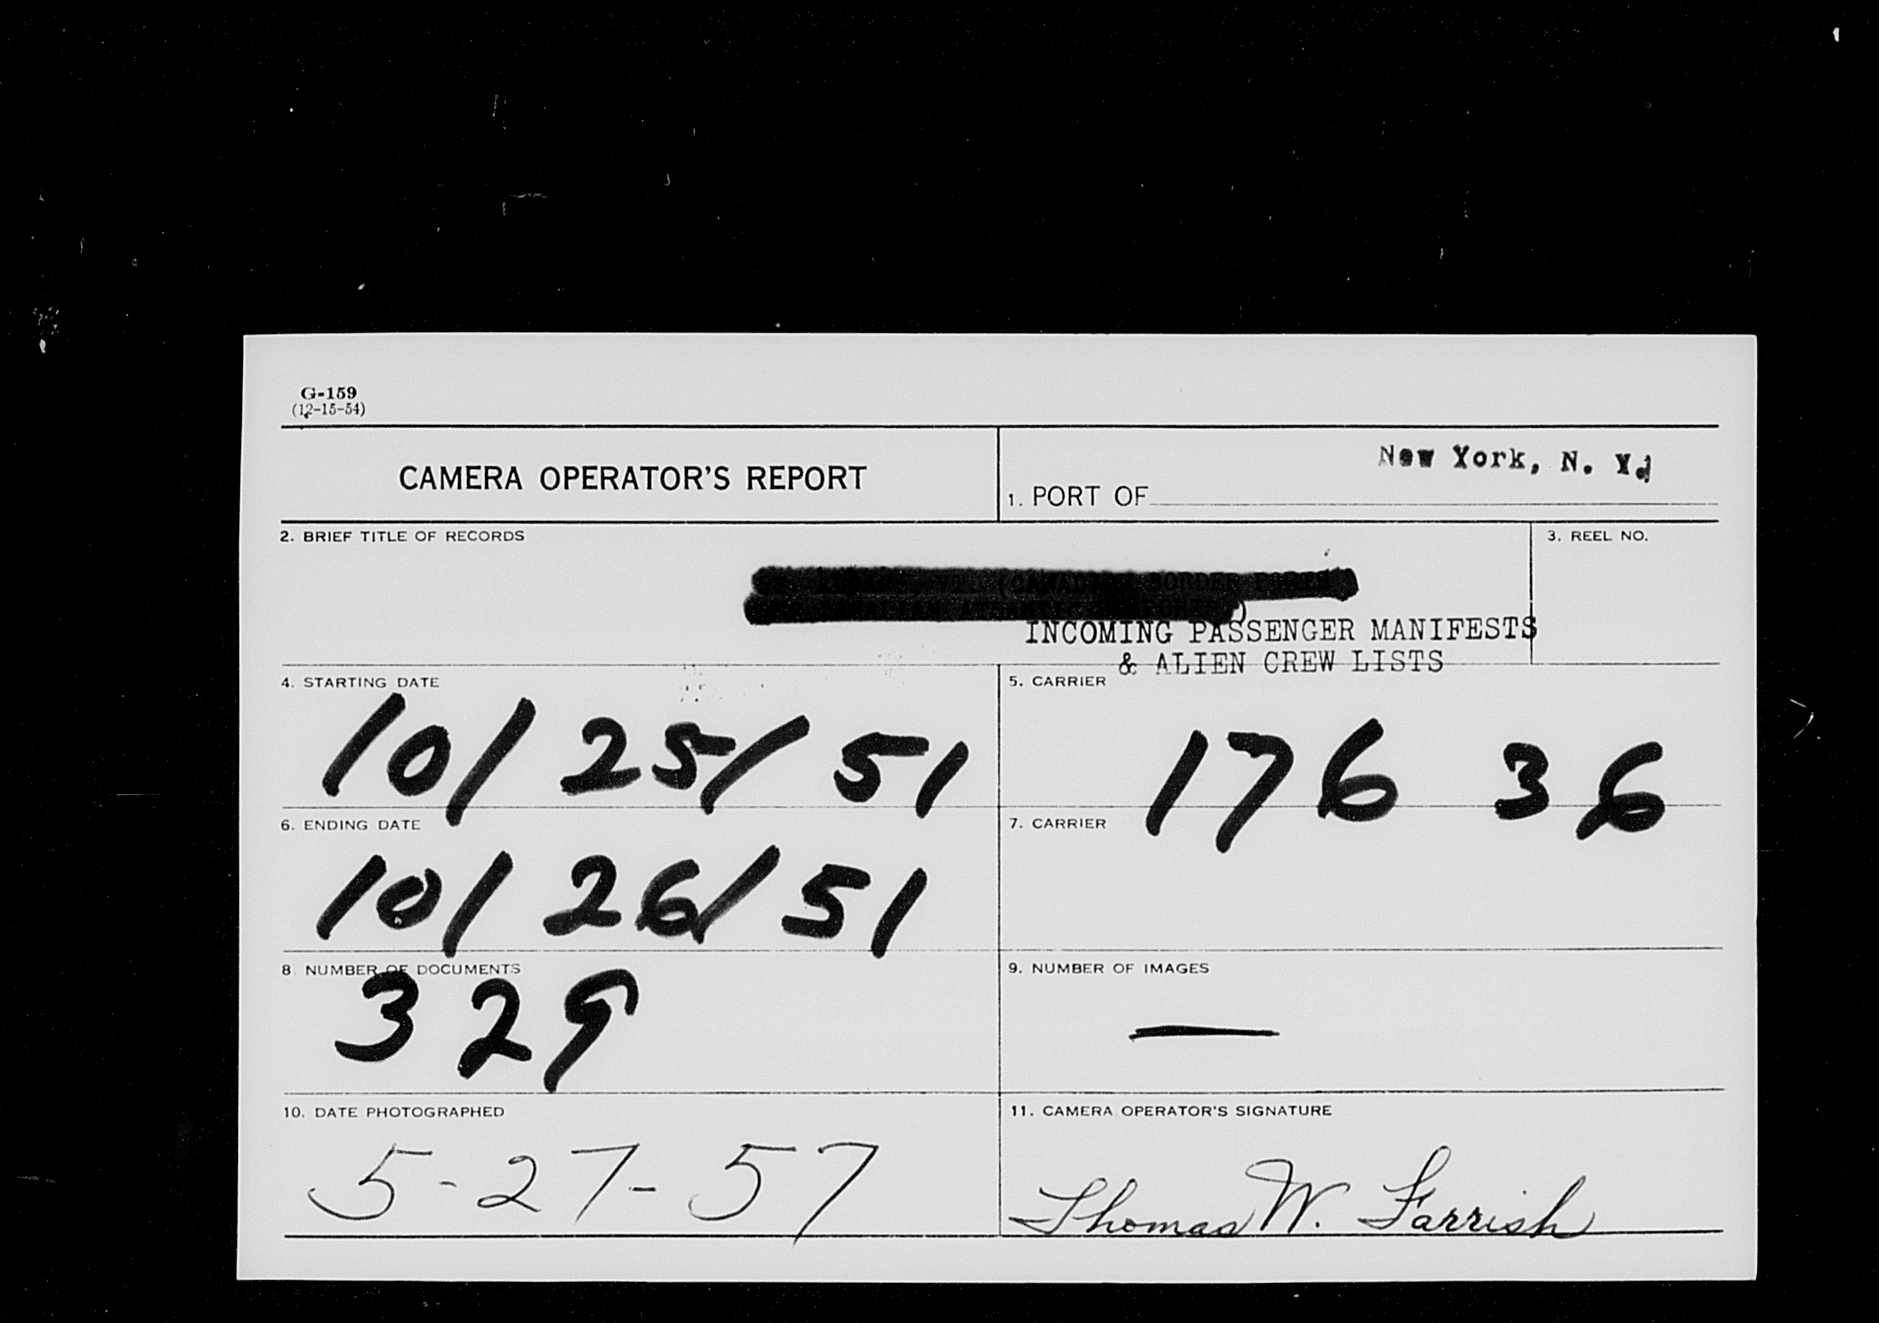 G-159
(12-15-54)
CAMERA OPERATOR'S REPORT
1. PORT OF New York, N. Y.
2. BRIEF TITLE OF RECORDS
3. REEL NO.
(CANADIAN BORDER PORTS
CANADIAN ATLANTIC SEAPORTS)
INCOMING PASSENGER MANIFESTS
& ALIEN CREW LISTS
4. STARTING DATE
10/25/51
5. CARRIER
176 36
6. ENDING DATE
10/26/51
7. CARRIER
8 NUMBER OF DOCUMENTS
329
9. NUMBER OF IMAGES
—
10. DATE PHOTOGRAPHED
5-27-57
11. CAMERA OPERATOR'S SIGNATURE
Thomas W. Farrish